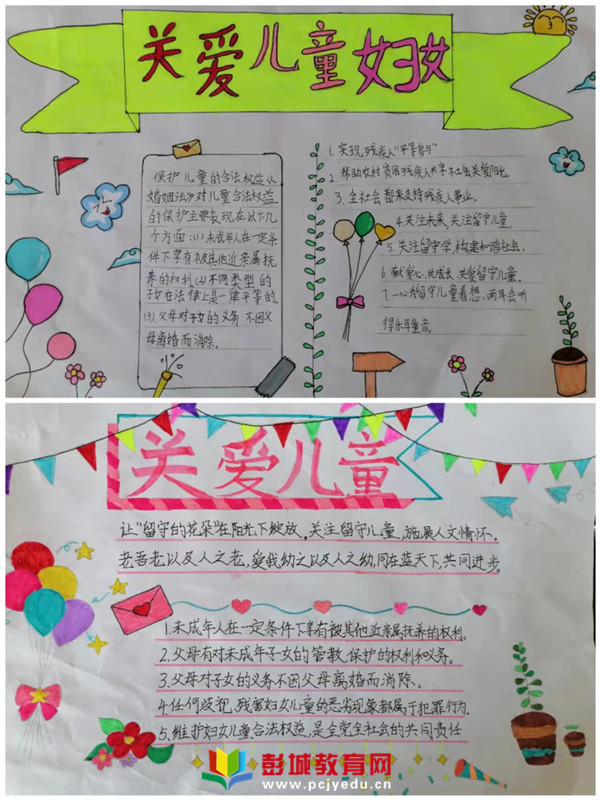 关爱儿童妇女
保护儿童的合法权益从
婚姻法》对儿童合法权益
的保护主要表现在以下几
个方面:(1)未成年人在一定条
件下享有被其他近亲属抚
养的权利(2)不同类型的
子女在法律上是一律平等的
(3)父母对子女的义务不因父
母离婚而消除。
1.实现残疾人"平等参与"
2.帮助农村贫困残疾人共享社会关爱阳光
3.全社会都来支持残疾人事业。
4.关注未来,关注留守儿童
5.关注留守学,构建和谐社会。
6.献爱心,共成长,关爱留守儿童。
7.一心为留守儿童着想,两耳会听
得乐耳童音。
关爱儿童
让"留守的花朵"在阳光下绽放,关注留守儿童,施展人文情怀。
老吾老以及人之老,爱我幼之以及人之幼,同在蓝天下,共同进步。
1.未成年人在一定条件下享有被其他近亲属抚养的权利。
2.父母有对未成年子女的管教、保护的权利和义务。
3.父母对子女的义务不因父母离婚而消除、
4.任何歧视,残害妇女儿童的恶劣现象都属于犯罪行为。
5、维护妇女儿童合法权益,是全党全社会的共同责任
彭城教育网
www.pcjyedu.cn